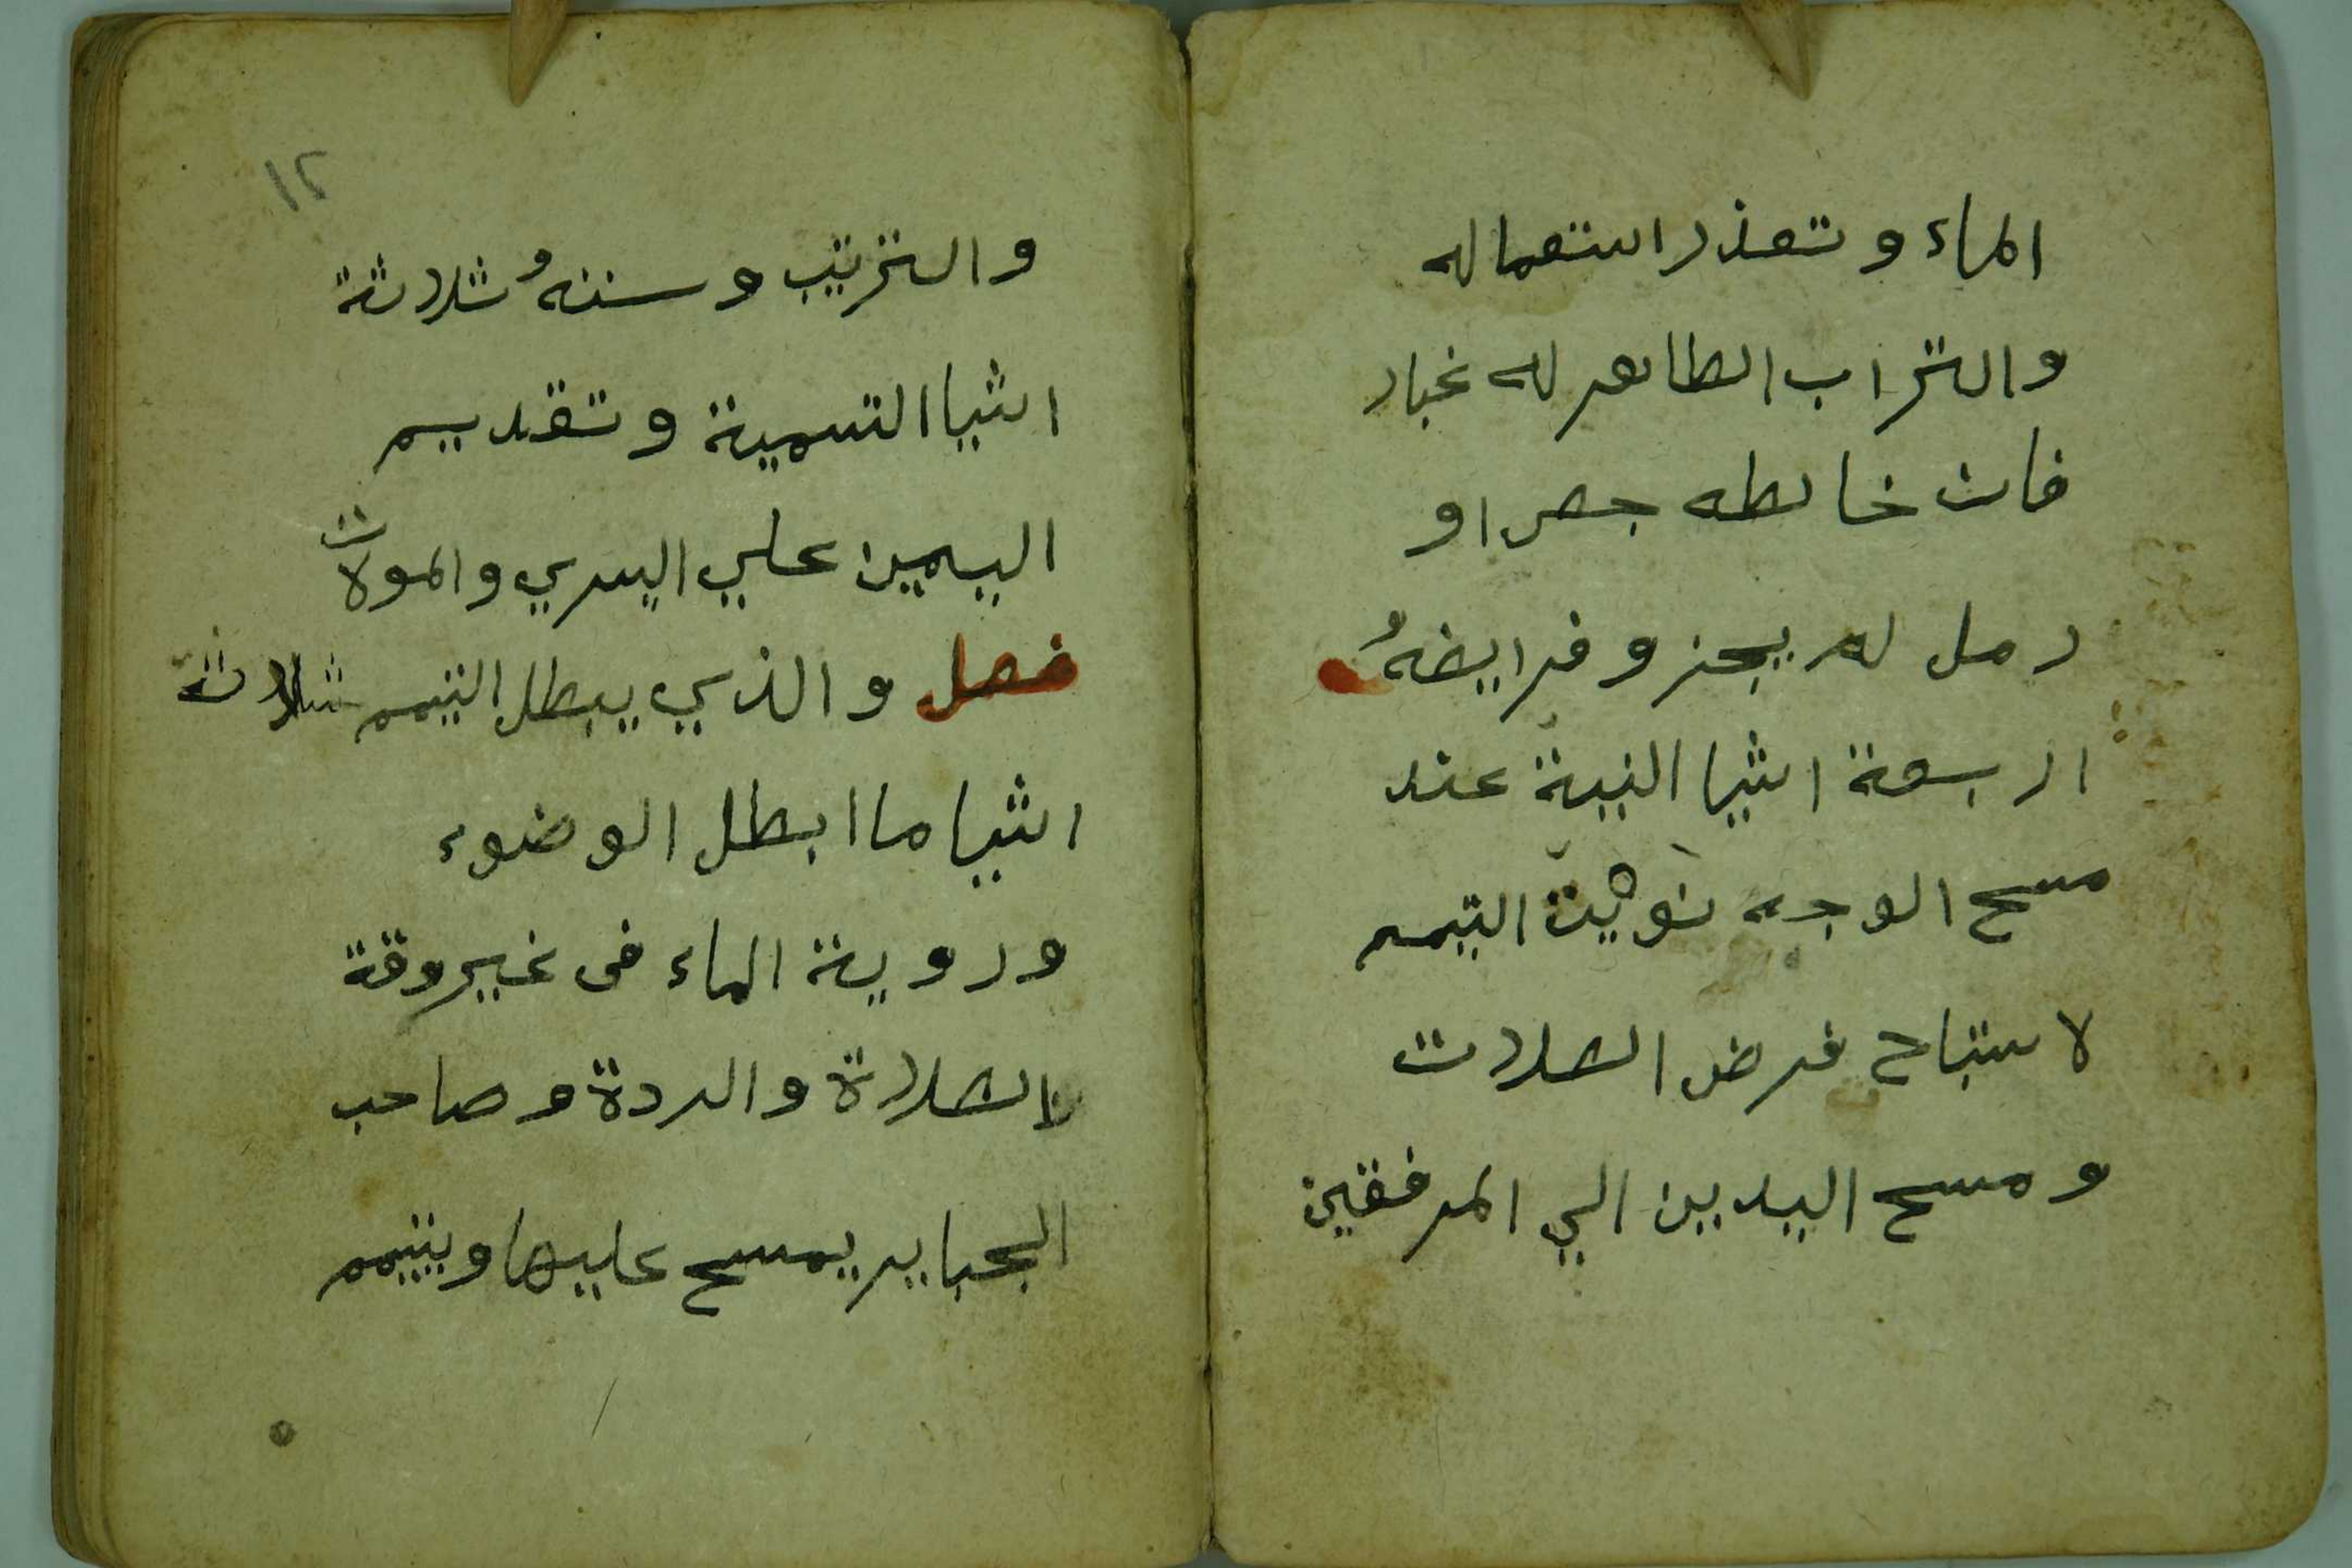 الماء وتعذر استعماله
والتراب الطاهر له غبار
فان خالطه جص او
رمل لم يجز وفرايضهُ
اربعة اشيا النية عند
مسح الوجه نويت التيمم
لاستباح فرض الصلات
ومسح اليدين الي المرفقين
١٢
والترتيب وسننهُ ثلاثة
اشيا التسمية وتقديم
اليمين علي اليسري والمولات
فصل والذي يبطل التيمم ثلاثة
اشيا ما ابطل الوضوء
وروية الماء فى غير وقة
الصلاة والردة وصاحب
الجباير يمسح عليها ويتيمم